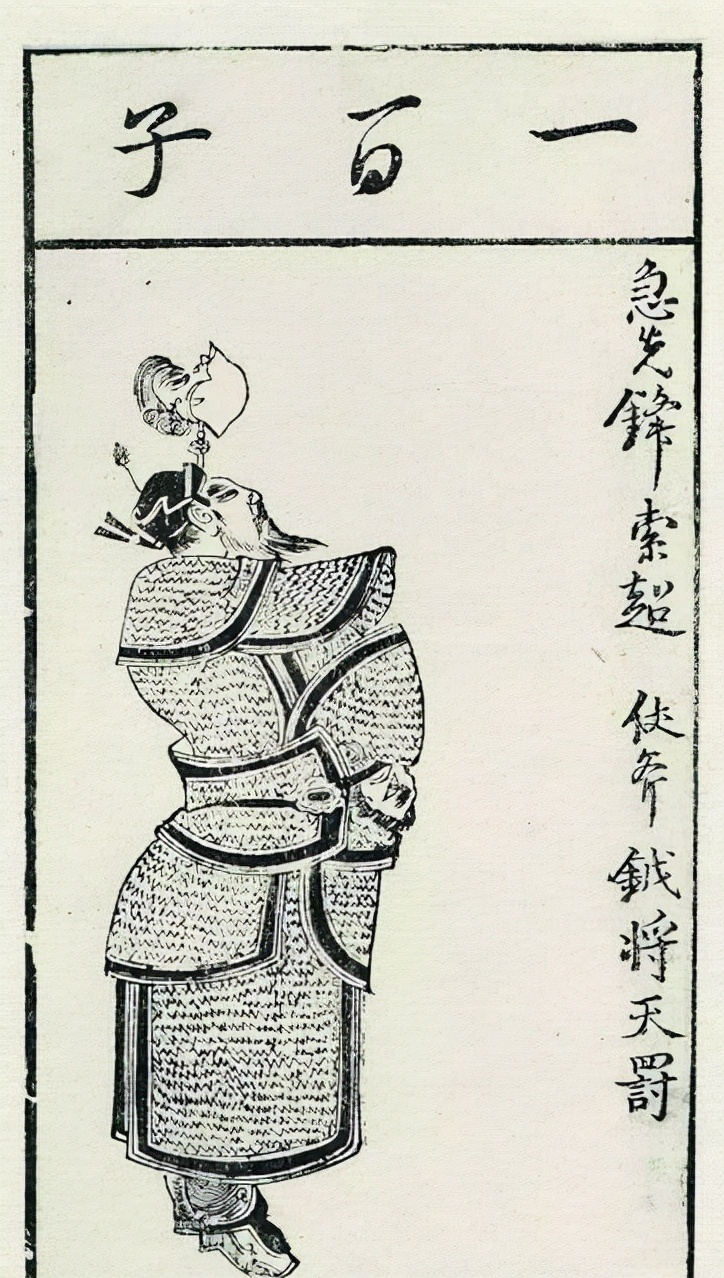 一百子
急先鋒 索超 仗斧鉞將天罰